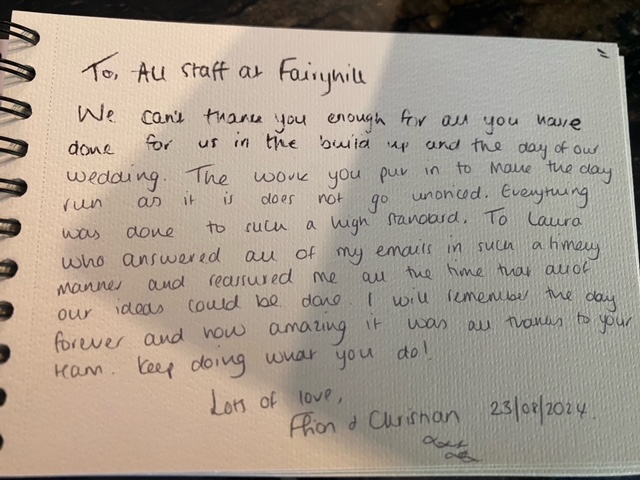 To, All staff at Fairyhill
We can't thank you enough for all you have
done for us in the build up and the day of our
wedding. The work you put in to make the day
run as it is does not go unoticed. Everything
was done to such a high standard. To Laura
who answered all of my emails in such a timely
manner and reassured me all the time that all of
our ideas could be done. I will remember the day
forever and how amazing it was all thanks to your
team. Keep doing what you do!
Lots of love,
Ffion & Christian 23/08/2024.